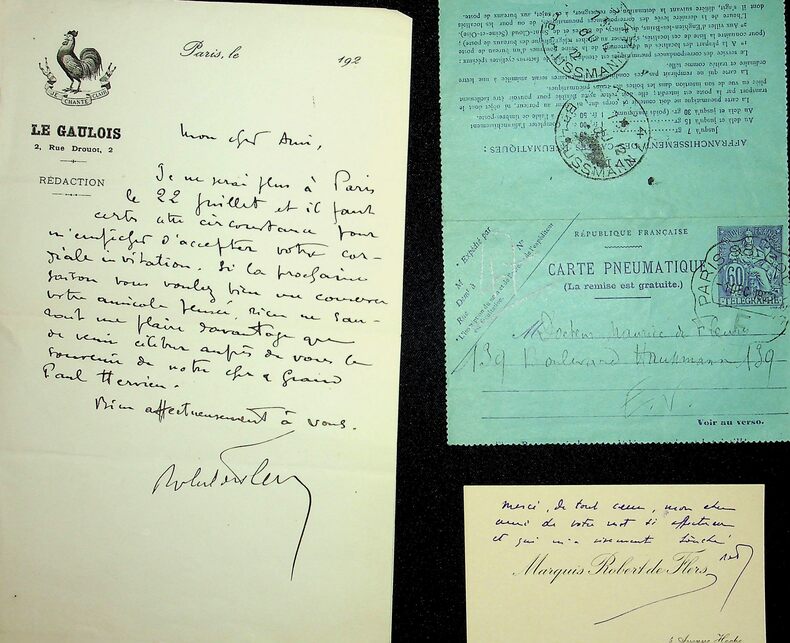 JE CHANTE CLAIR
LE GAULOIS
2, Rue Drouot, 2
RÉDACTION
Paris, le 192
Mon cher Ami,
Je ne serai plus à Paris
le 22 Juillet et il faut
cette circonstance pour
m'empêcher d'accepter votre cor-
diale invitation. Si la prochaine
saison vous voulez bien me conserver
votre amicale pensée, rien ne sau-
rait me plaire davantage que
de venir célébrer auprès de vous le
souvenir de notre cher et grand
Paul Hervieu.
Bien affectueusement à vous.
Robert de Flers
AFFRANCHISSEMENT DES CARTES PNEUMATIQUES :
Jusqu'à 7 gr.
Au delà et jusqu'à 15 gr.
Au delà et jusqu'à 30 gr. (poids maximum) 1 fr. 50
RÉPUBLIQUE FRANÇAISE
CARTE PNEUMATIQUE
(La remise est gratuite.)
Expédié par
M
N°
Rue
60
TÉLÉGRAPHE
PARIS
M Docteur Maurice de Fleury
139 Boulevard Haussmann 139
E. V.
Voir au verso.
Merci, de tout cœur, mon cher
ami de votre mot si affectueux
et qui m'a vivement touché
Marquis Robert de Flers